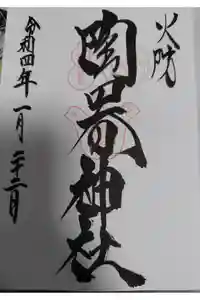 火防
陶器神社
令和四年一月二十二日